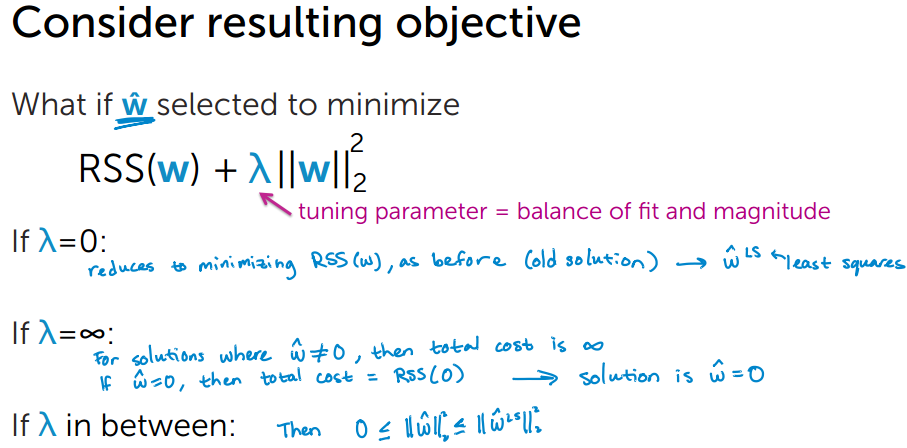 Consider resulting objective
What if ŵ selected to minimize
RSS(w) + λ||w||₂²
tuning parameter = balance of fit and magnitude
If λ=0:
reduces to minimizing RSS(w), as before (old solution) → ŵ^LS ← least squares
If λ=∞:
For solutions where ŵ≠0, then total cost is ∞
If ŵ=0, then total cost = RSS(0) → solution is ŵ=0
If λ in between: Then 0 ≤ ||ŵ||₂² ≤ ||ŵ^LS||₂²